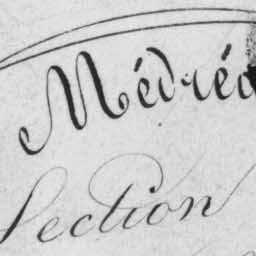 Médréac
Section